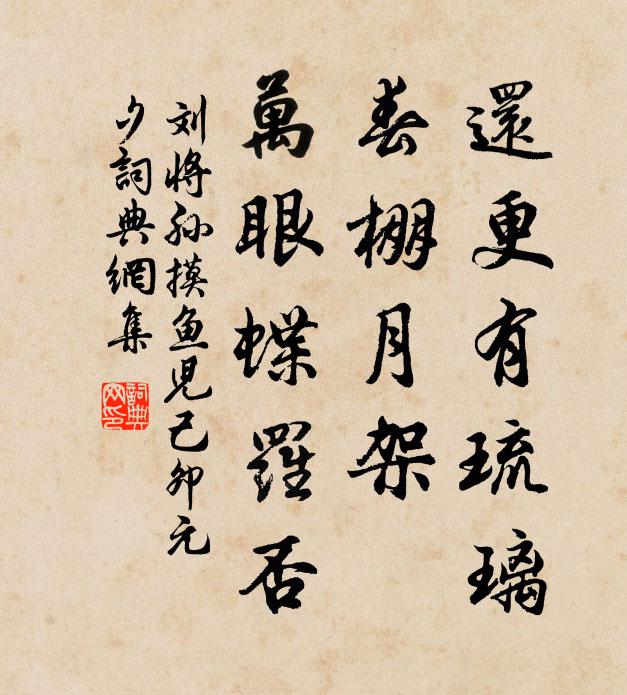 還更有琉璃
春棚月架
萬眼蝶羅否
刘将孙摸鱼児己卯元
夕詞典網集
詞典
网印